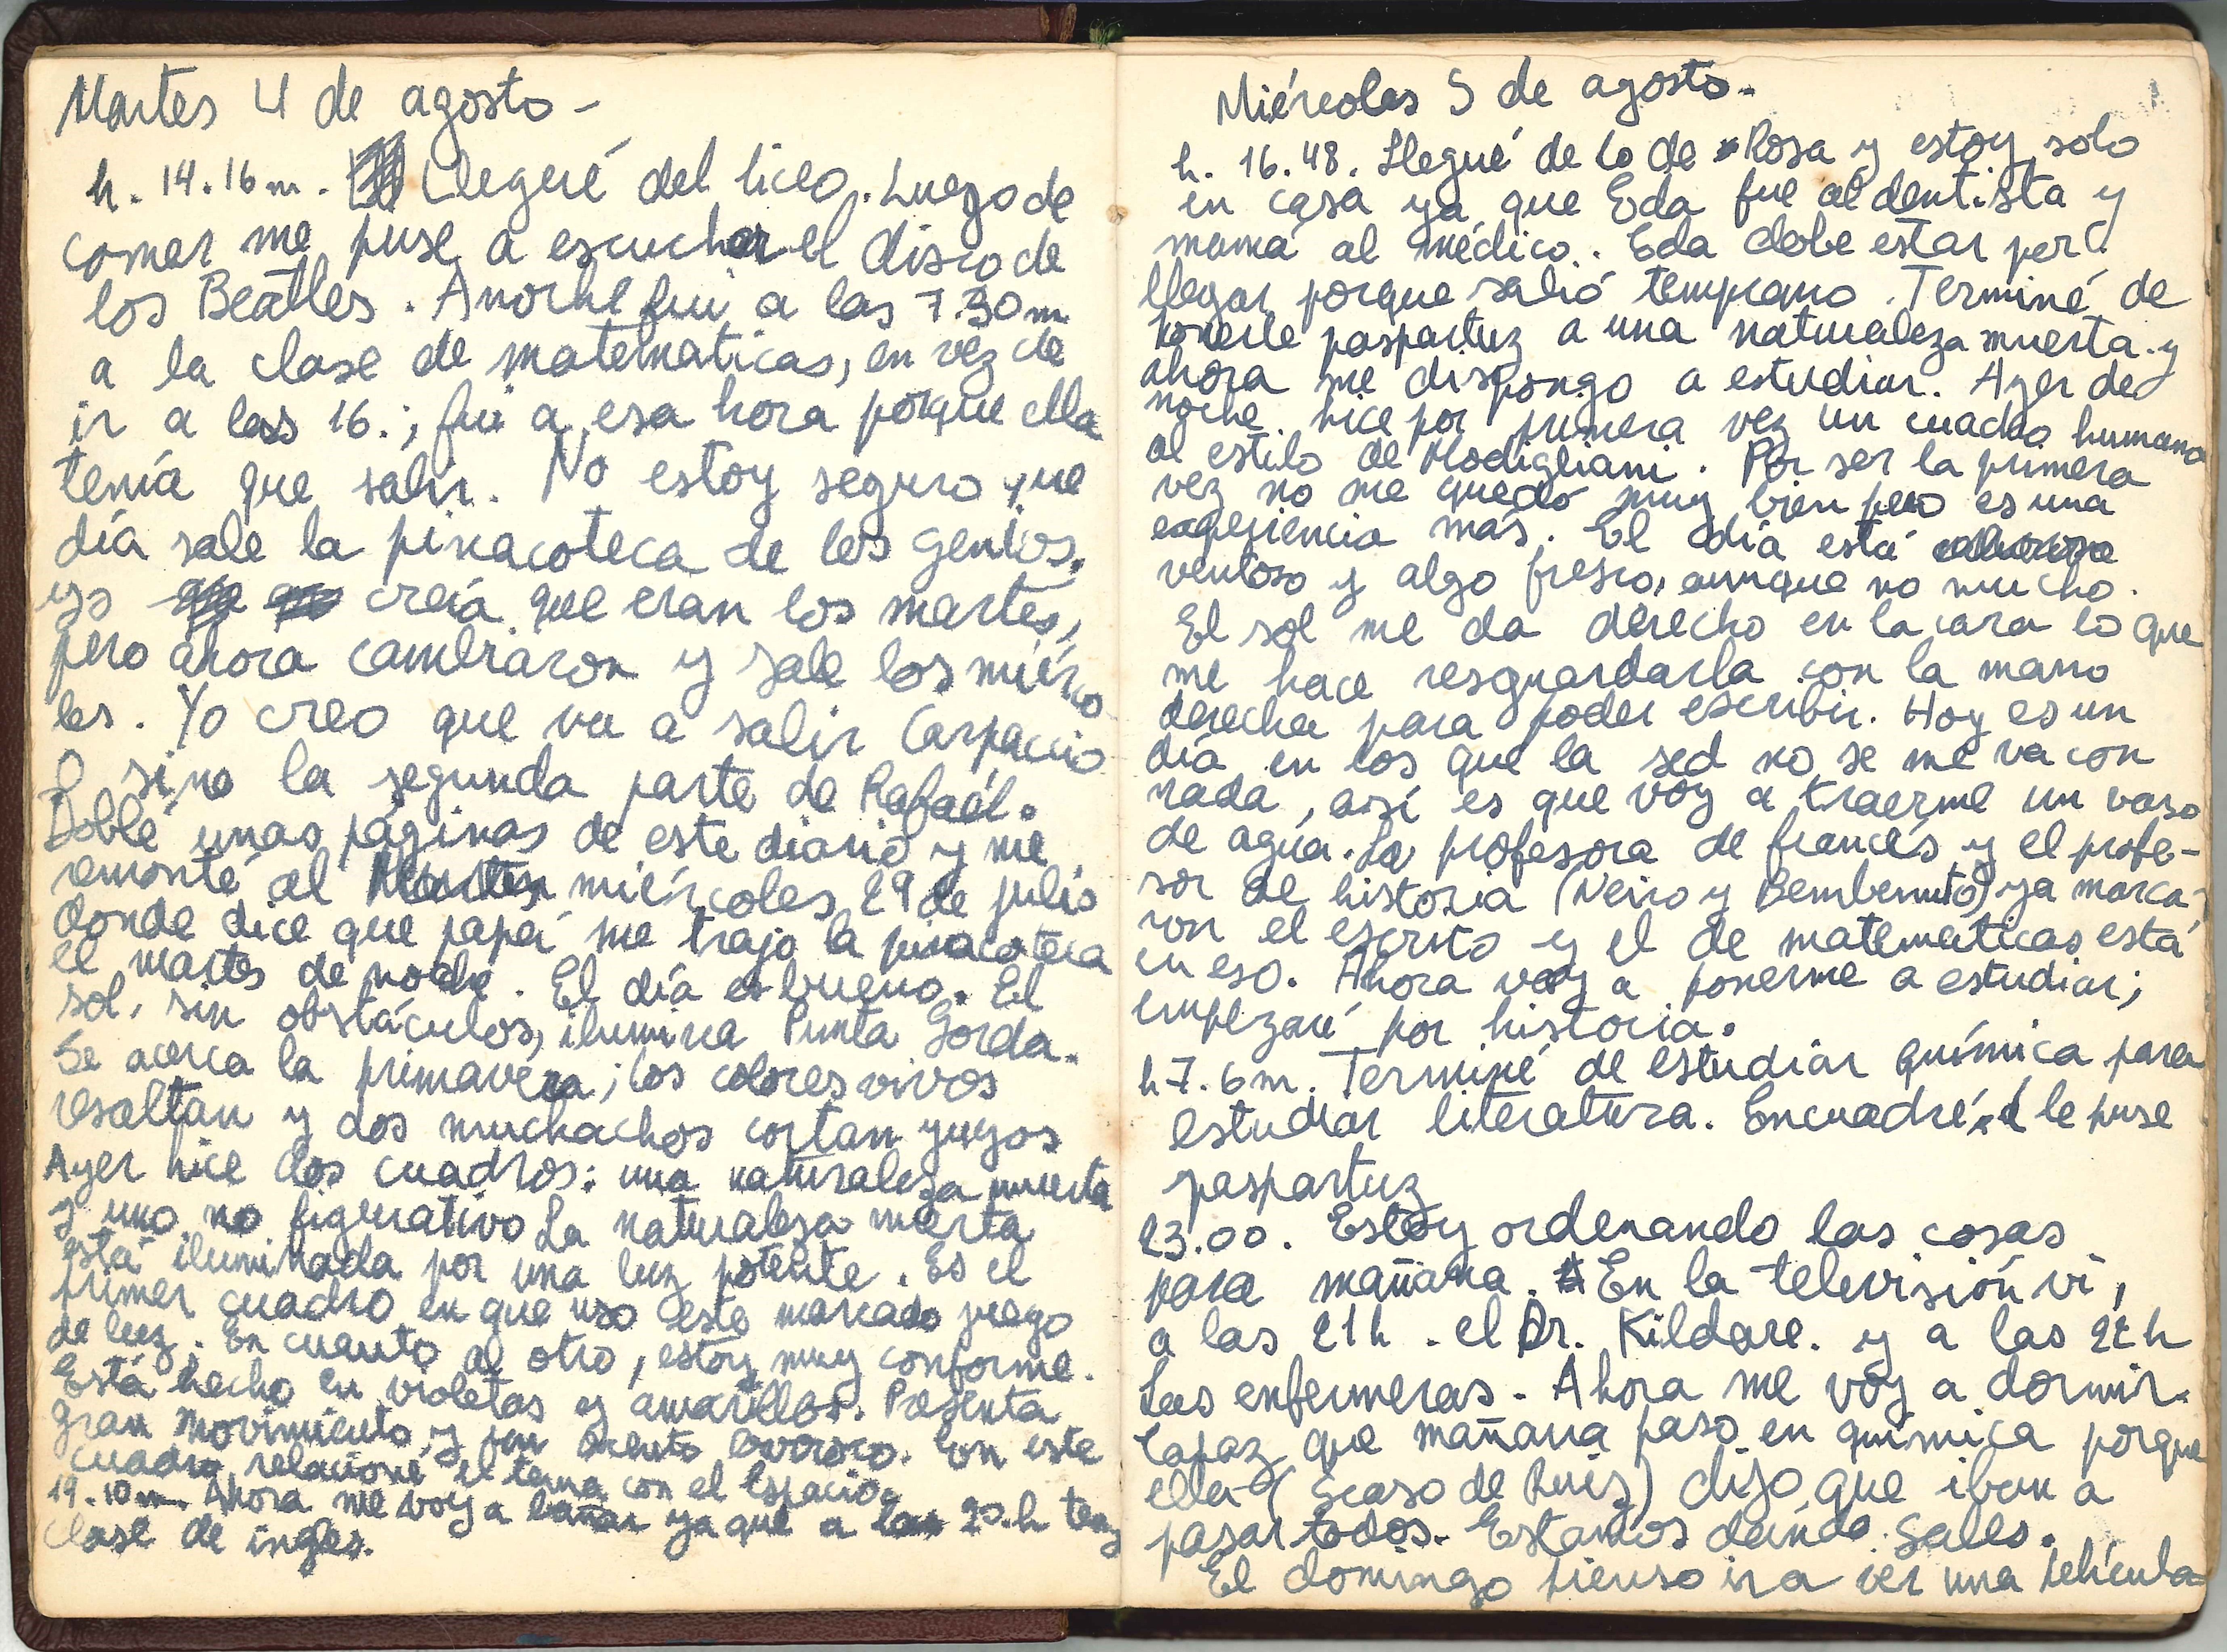 Martes 4 de agosto -
h. 14.16 m. Llegué del liceo. Luego de
comer me puse a escuchar el disco de
los Beatles. Anoche fui a las 7.30 m
a la clase de matematicas, en vez de
ir a las 16.; fui a esa hora porque ella
tenía que salir. No estoy seguro que
día sale la pinacoteca de los genios.
yo creía que eran los martes,
pero ahora cambiaron y sale los miérco
les. Yo creo que va a salir Carpaccio
O sino la segunda parte de Rafaél.
Doblé unas páginas de este diario y me
remonté al miércoles 29 de julio
donde dice que papá me trajo la pinacoteca
el martes de noche. El día es bueno. El
sol, sin obstáculos, ilumina Punta Gorda.
Se acerca la primavera; los colores vivos
resaltan y dos muchachos cortan yuyos
Ayer hice dos cuadros: una naturaleza muerta
y uno no figurativo La naturaleza merta
está iluminada por una luz potente. Es el
primer cuadro en que uso este marcado juego
de luz. En cuanto al otro, estoy muy conforme.
Está hecho en violetas y amarillos. Presenta
gran movimiento y un
En este
cuadro relacioné el tema con el Espacio.
19.10 m. Ahora me voy a bañar ya que a las 20.h teng
clase de ingles.
Miércoles 5 de agosto.
h. 16.48. Llegué de lo de Rosa y estoy solo
en casa ya que Eda fue al dentista y
mamá al médico. Eda debe estar por
llegar porque salió temprano. Terminé de
ponerle paspartuz a una naturaleza muerta y
ahora me dispongo a estudiar. Ayer de
noche hice por primera vez un cuadro humano
al estilo de Modigliani. Por ser la primera
vez no me quedó muy bien pero es una
experiencia más. El día está
ventoso y algo fresco, aunque no mucho.
El sol me da derecho en la cara lo que
me hace resguardarla con la mano
derecha para poder escribir. Hoy es un
día en los que la sed no se me va con
nada, así es que voy a traerme un vaso
de agua. La profesora de francés y el profe-
sor de historia (Neiro y Bembenuto) ya marca-
ron el escrito y el de matematicas está
en eso. Ahora voy a ponerme a estudiar;
empezaré por historia.
h 7.6 m. Terminé de estudiar química para
estudiar literatura. Encuadré, le puse
paspartuz
23.00. Estoy ordenando las cosas
para mañana. En la televisión vi,
a las 21h. el Dr. Kildare. y a las 22 h
Las enfermeras. Ahora me voy a dormir.
Capaz que mañana paso en química porque
ella (Scaso de Ruiz) dijo que iban a
pasar todos. Estamos dando Sales.
El domingo pienso ir a ver una película